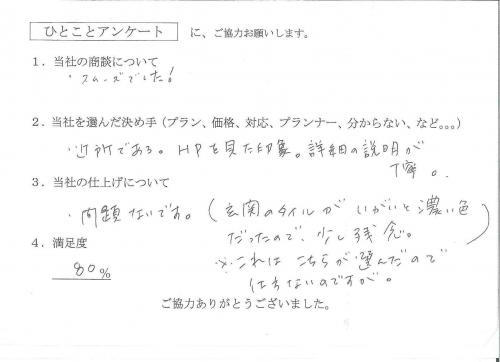 ひとことアンケート に、ご協力お願いします。
1．当社の商談について
・スムーズでした！
2．当社を選んだ決め手（プラン、価格、対応、プランナー、分からない、など。。。）
・近所である。HPを見た印象。詳細の説明が
丁寧。
3．当社の仕上げについて
・問題ないです。（玄関のタイルがいがいと濃い色
だったので、少し残念。）
※これはこちらが選んだので
仕方ないのですが。
4．満足度
80％
ご協力ありがとうございました。